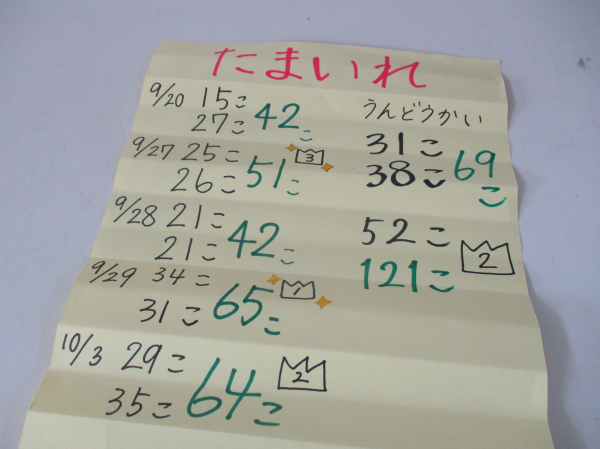 たまいれ
9/20 15こ
27こ 42こ
9/27 25こ
26こ 51こ 3
9/28 21こ
21こ 42こ
9/29 34こ
31こ 65こ 1
10/3 29こ
35こ 64こ 2
うんどうかい
31こ
38こ 69こ
52こ
121こ 2